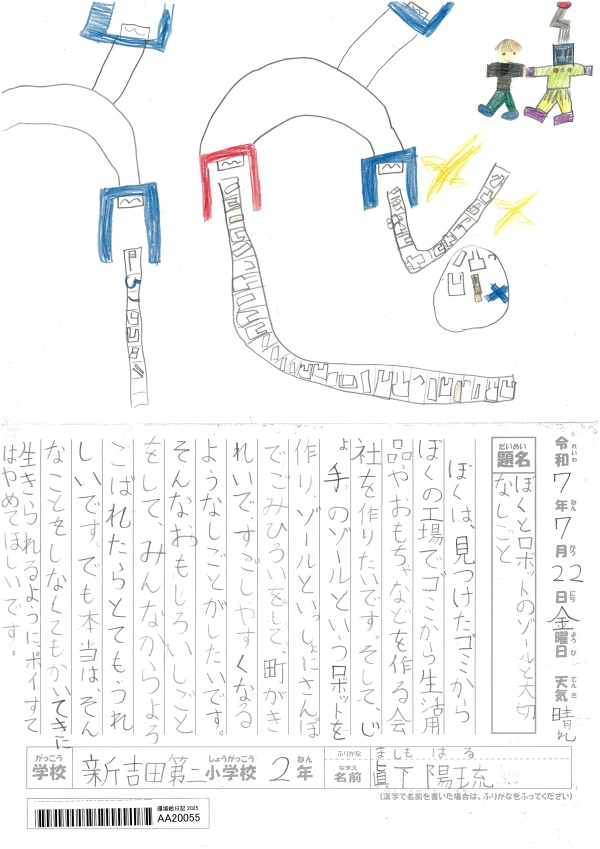 令和7年7月22日金曜日 天気 晴れ
れいわ ねん がつ にち ようび てんき
だいめい
題名
ぼくとロボットのゾールと大切
なしごと
ぼくは、見つけたゴミから
ぼくの工場でゴミから生活用
品やおもちゃなどを作る会
社を作りたいです。そして、じ
ょ手のゾールというロボットを
作り、ゾールといっしょにさんぽ
でごみひろいをして、町がき
れいですごしやすくなる
ようなしごとがしたいです。
そんなおもしろいしごと
をして、みんなからよろ
こばれたらとてもうれ
しいです。でも本当は、そん
なことをしなくてもかいてきに
生きられるように、ポイすて
はやめてほしいです。
がっこう しょうがっこう ねん
学校 新吉田第二小学校 2年
ふりがな ましも はる
なまえ
名前 眞下 陽琉
(漢字で名前を書いた場合は、ふりがなをふってください)
環境絵日記2025
AA20055